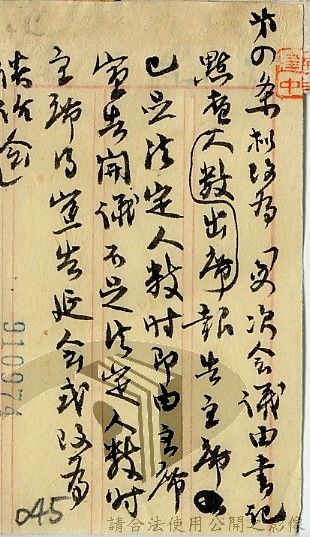 第四条擬改為「每次会議由書记
點查人数出席報告主席
已足法定人数时即由主席
宣告開議不足法定人数时
主席得宣告延会或改為
談话会
910974
045
請合法使用公開之影像